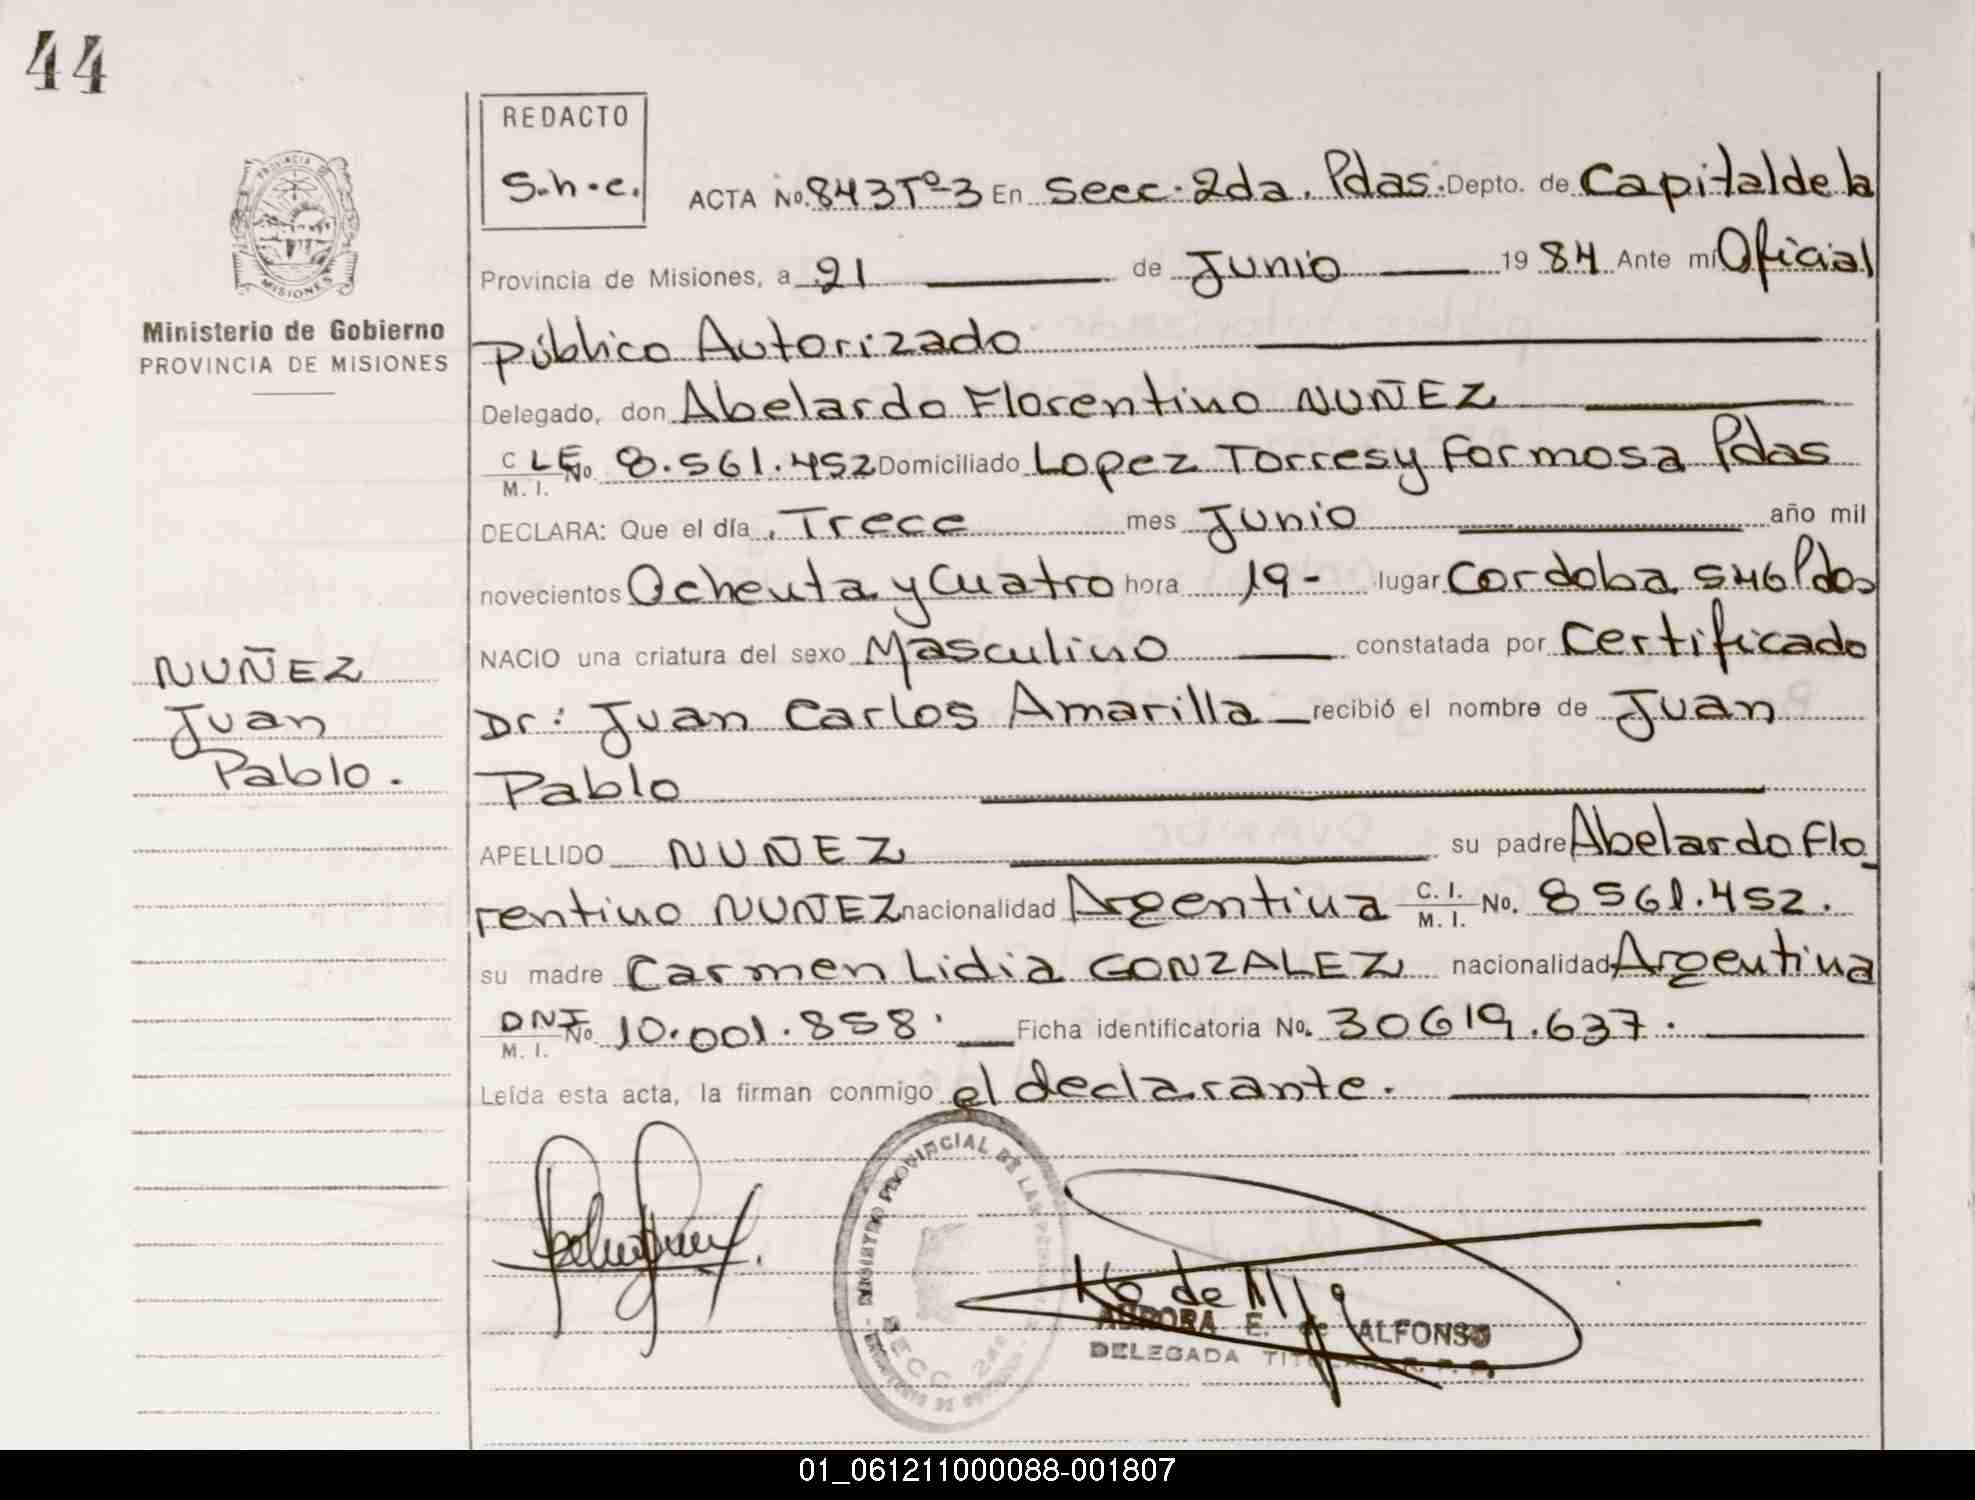 44
REDACTO
S.h.e.
ACTA No. 843 Tº-3 En Secc. 2da. Pdas. Depto. de Capital de la
Provincia de Misiones, a 21 de Junio 1984 Ante mí Oficial
Público Autorizado
Delegado, don Abelardo Florentino NUÑEZ
C LE No. 8.561.452 Domiciliado Lopez Torres y Formosa Pdas
M. I.
DECLARA: Que el día Trece mes Junio año mil
novecientos Ochenta y Cuatro hora 19- lugar Cordoba Pdas
NACIO una criatura del sexo Masculino constatada por Certificado
Dr: Juan Carlos Amarilla recibió el nombre de Juan
Pablo
APELLIDO NUÑEZ su padre Abelardo Flo
rentino NUÑEZ nacionalidad Argentina C. I. M. I. No. 8561.452.
su madre Carmen Lidia GONZALEZ nacionalidad Argentina
DNI No 10.001.858. Ficha identificatoria No. 30619.637.
M. I.
Leída esta acta, la firman conmigo el declarante.
PROVINCIA DE
MISIONES
Ministerio de Gobierno
PROVINCIA DE MISIONES
NUÑEZ
Juan
Pablo.
REGISTRO PROVINCIAL DE LAS
SECC. 2da
AURORA E. de ALFONSO
DELEGADA
01_061211000088-001807